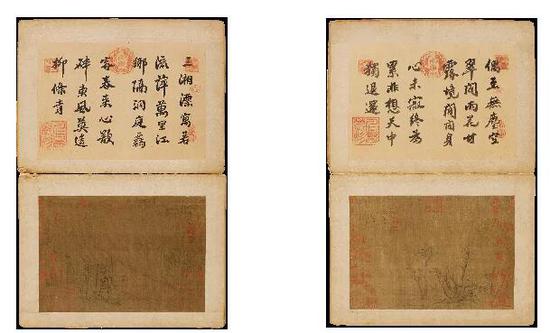 三湘漂寓若
流萍萬里江
鄉隔洞庭羈
客春來心欲
碎東風莫遣
柳條青
偶至無塵空
翠間雨花甘
露境閒閒身
心未寂終為
累非想天中
獨退還